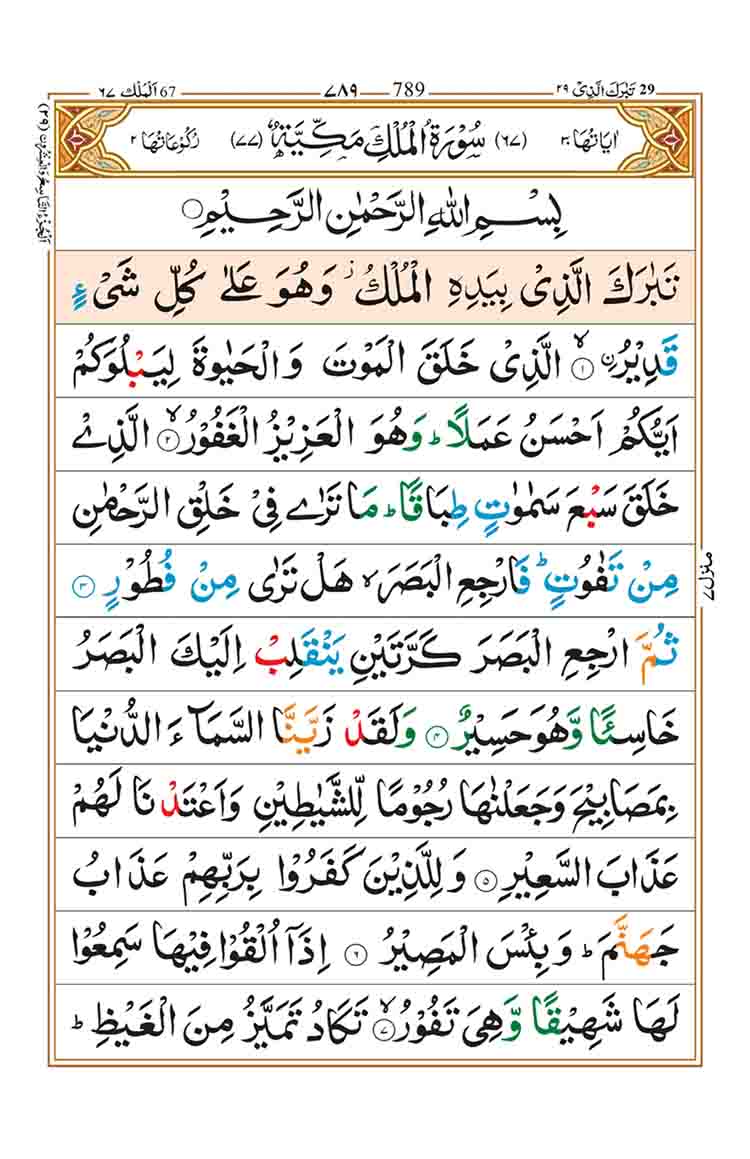 29 تَبٰرَكَ الَّذِیْ ۲۹
789 ۷۸۹
67 اَلْمُلْك ۶۷
اٰیَاتُهَا ۳۰
(۶۷) سُوْرَةُ الْمُلْكِ مَكِّیَّةٌ (۷۷)
رُكُوْعَاتُهَا ۲
بِسْمِ اللّٰهِ الرَّحْمٰنِ الرَّحِیْمِ
تَبٰرَكَ الَّذِیْ بِیَدِهِ الْمُلْكُ ز وَهُوَ عَلٰی كُلِّ شَیْءٍ
قَدِیْرُ ۨ ۙ ۝۱ الَّذِیْ خَلَقَ الْمَوْتَ وَالْحَیٰوةَ لِیَبْلُوَكُمْ
اَیُّكُمْ اَحْسَنُ عَمَلًا ؕ وَهُوَ الْعَزِیْزُ الْغَفُوْرُ ۙ ۝۲ الَّذِیْ
خَلَقَ سَبْعَ سَمٰوٰتٍ طِبَاقًا ؕ مَا تَرٰی فِیْ خَلْقِ الرَّحْمٰنِ
مِنْ تَفٰوُتٍ ؕ فَارْجِعِ الْبَصَرَ ۙ هَلْ تَرٰی مِنْ فُطُوْرٍ ۝۳
ثُمَّ ارْجِعِ الْبَصَرَ كَرَّتَیْنِ یَنْقَلِبْ اِلَیْكَ الْبَصَرُ
خَاسِئًا وَّهُوَ حَسِیْرٌ ۝۴ وَلَقَدْ زَیَّنَّا السَّمَآءَ الدُّنْیَا
بِمَصَابِیْحَ وَجَعَلْنٰهَا رُجُوْمًا لِّلشَّیٰطِیْنِ وَاَعْتَدْنَا لَهُمْ
عَذَابَ السَّعِیْرِ ۝۵ وَلِلَّذِیْنَ كَفَرُوْا بِرَبِّهِمْ عَذَابُ
جَهَنَّمَ ؕ وَبِئْسَ الْمَصِیْرُ ۝۶ اِذَاۤ اُلْقُوْا فِیْهَا سَمِعُوْا
لَهَا شَهِیْقًا وَّهِیَ تَفُوْرُ ۙ ۝۷ تَكَادُ تَمَیَّزُ مِنَ الْغَیْظِ ؕ
منزل ۷
اَلْجُزْءُ التَّاسِعُ وَالْعِشْرُوْنَ (۲۹)